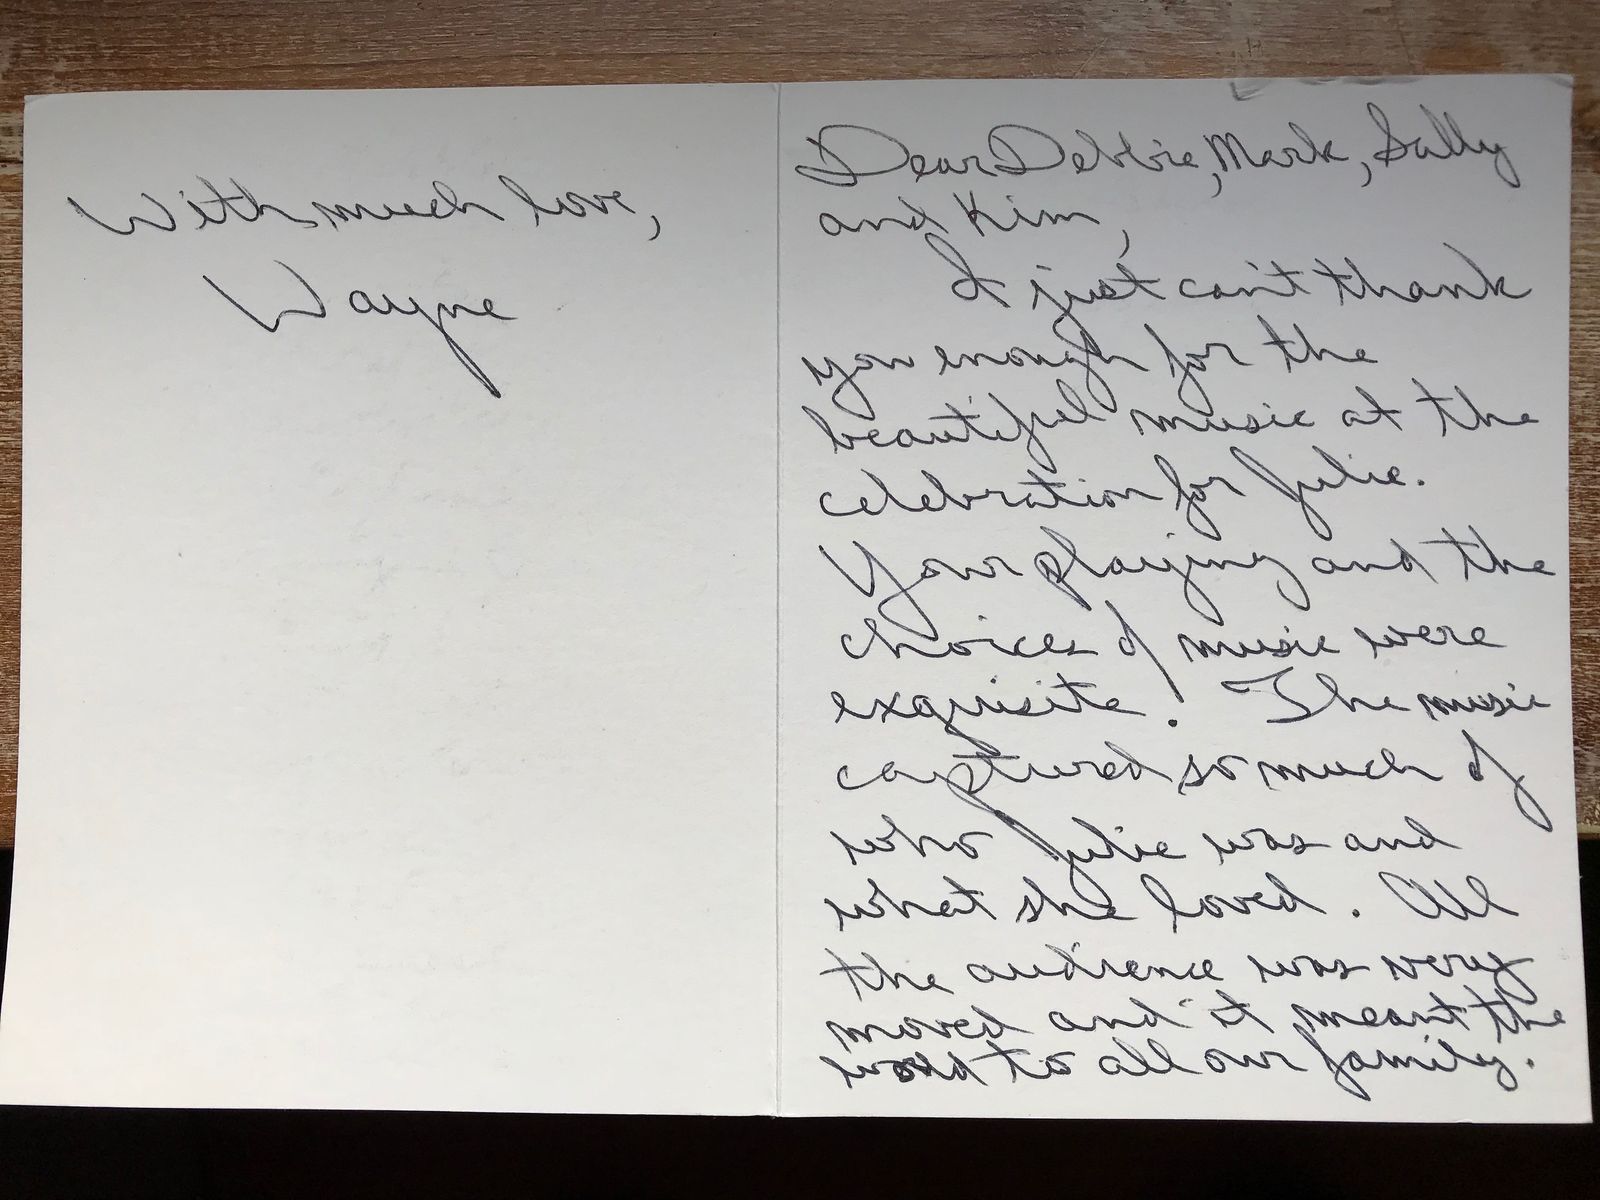 Dear Debbie, Mark, Sally
and Kim,
I just can't thank
you enough for the
beautiful music at the
celebration for Julie.
Your playing and the
choices of music were
exquisite! The music
captured so much of
who Julie was and
what she loved. All
the audience was very
moved and it meant the
world to all our family.
With much love,
Wayne